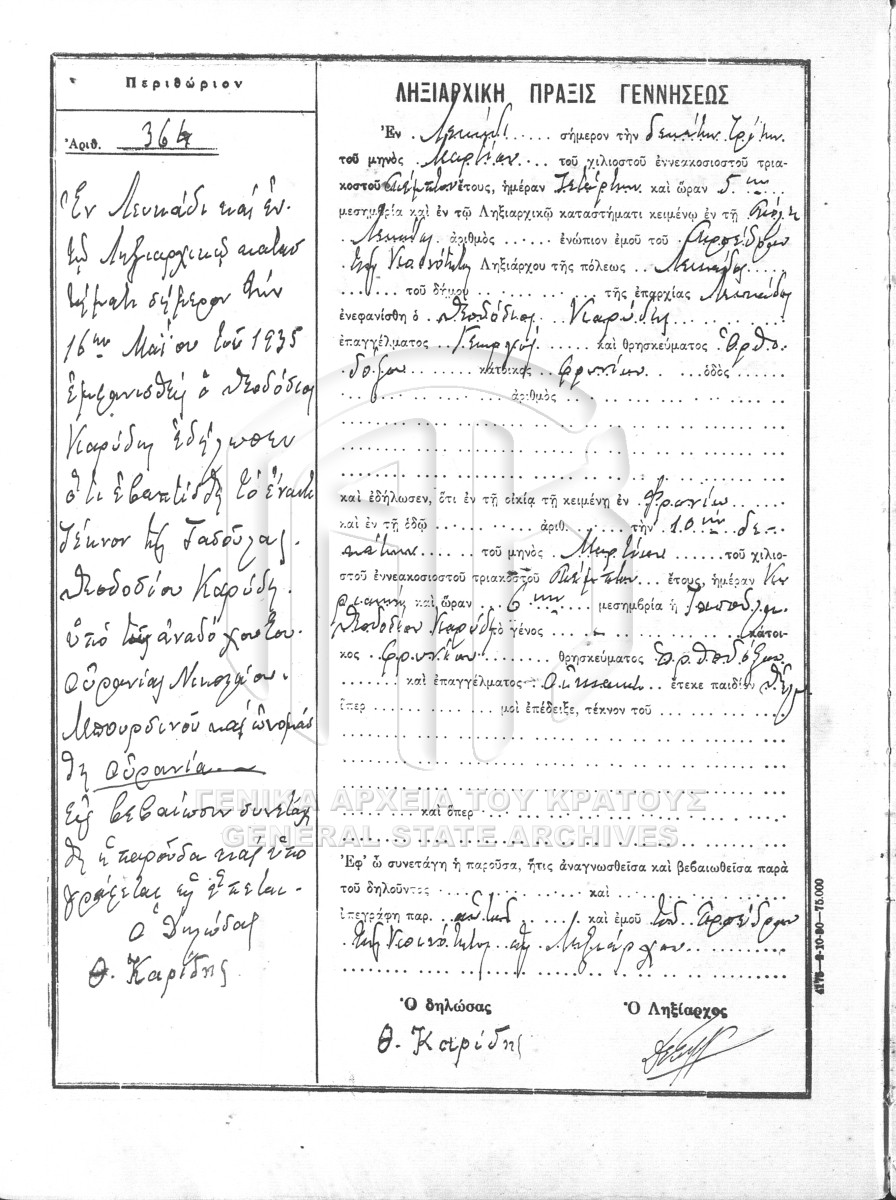 Περιθώριον
Ἀριθ. 364
Ἐν Λευκάδι καί ἐν
τῷ Ληξιαρχικῷ κατασ
τήματι σήμερον τήν
16ην Μαΐου τοῦ 1935
ἐμφανισθείς ὁ Θεοδόσιος
Καρύδης ἐδήλωσεν
ὅτι ἐβαπτίσθη τό ἔναντι
τέκνον τῆς Τασούλας
Θεοδοσίου Καρύδη
ὑπό τῆς ἀναδόχου του
Οὐρανίας Νικολάου
Μπουρδινοῦ καί ὠνομάσ
θη Οὐρανία
Εἰς βεβαίωσιν συνετάχ
θη ἡ παροῦσα καί ὑπο
γράφεται ὡς ἕπεται.
Ὁ Δηλώσας
Θ. Καρίδης
ΛΗΞΙΑΡΧΙΚΗ ΠΡΑΞΙΣ ΓΕΝΝΗΣΕΩΣ
Ἐν Λευκάδι σήμερον τὴν δεκάτην τρίτην
τοῦ μηνὸς Μαρτίου τοῦ χιλιοστοῦ ἐννεακοσιοστοῦ τρια-
κοστοῦ πέμπτου ἔτους, ἡμέραν Τετάρτην καὶ ὥραν 5 μμ
μεσημβρία καὶ ἐν τῷ Ληξιαρχικῷ καταστήματι κειμένῳ ἐν τῇ Πόλει
Λευκάδος ἀριθμὸς ἐνώπιον ἐμοῦ τοῦ Προέδρου
τῆς Κοινότητος Ληξιάρχου τῆς πόλεως Λευκάδος
τοῦ δήμου τῆς ἐπαρχίας Λευκάδος
ἐνεφανίσθη ὁ Θεοδόσιος Καρύδης
ἐπαγγέλματος Γεωργός καὶ θρησκεύματος Ὀρθο
δόξου κάτοικος Φρυνίου ὁδὸς
ἀριθμὸς
καὶ ἐδήλωσεν, ὅτι ἐν τῇ οἰκίᾳ τῇ κειμένῃ ἐν Φρυνίῳ
καὶ ἐν τῇ ὁδῷ ἀριθ. τὴν 10ην δε-
κάτην τοῦ μηνὸς Μαρτίου τοῦ χιλιο-
στοῦ ἐννεακοσιοστοῦ τριακοστοῦ Πέμπτου ἔτους, ἡμέραν Κυ
ριακήν καὶ ὥραν 6 μεσημβρία ἡ Τασούλα
Θεοδοσίου Καρύδη τὸ γένος κάτοι-
κος Φρυνίου θρησκεύματος Ὀρθοδόξου
καὶ ἐπαγγέλματος οἰκιακά ἔτεκε παιδίον θῆλυ
ὅπερ μοὶ ἐπέδειξε, τέκνον τοῦ
καὶ ὅπερ
ΓΕΝΙΚΑ ΑΡΧΕΙΑ ΤΟΥ ΚΡΑΤΟΥΣ
GENERAL STATE ARCHIVES
Ἐφ' ᾧ συνετάγη ἡ παροῦσα, ἥτις ἀναγνωσθεῖσα καὶ βεβαιωθεῖσα παρὰ
τοῦ δηλοῦντος καὶ
ὑπεγράφη παρ αὐτοῦ καὶ ἐμοῦ τοῦ Προέδρου
τῆς Κοινότητος ὡς Ληξιάρχου
Ὁ δηλώσας
Ὁ Ληξίαρχος
Θ. Καρίδης